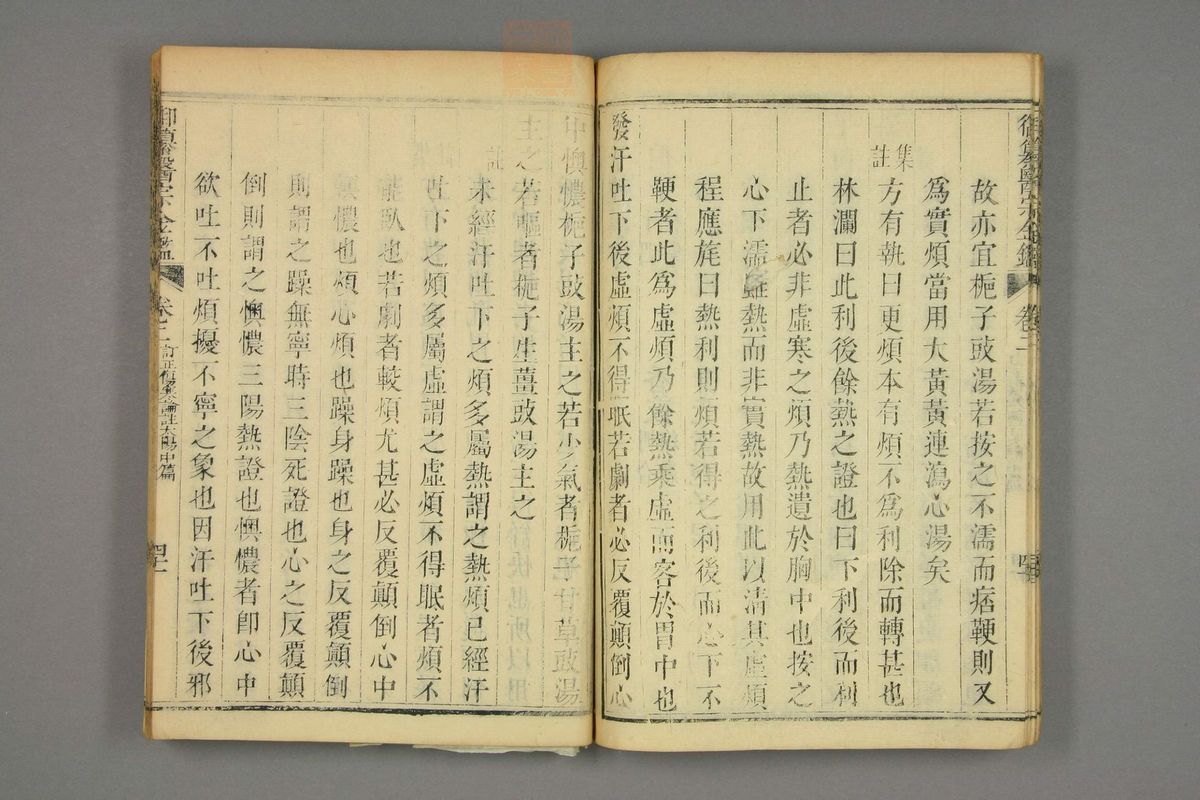 御纂醫宗金鑑 卷二
故亦宜梔子豉湯若按之不濡而痞鞕則又
為實煩當用大黃黃連瀉心湯矣
集註
方有執曰更煩本有煩不為利除而轉甚也
林瀾曰此利後餘熱之證也曰下利後而利
止者必非虛寒之煩乃熱遺於胸中也按之
心下濡雖熱而非實熱故用此以清其虛煩
程應旄曰熱利則煩若得之利後而心下不
鞕者此為虛煩乃餘熱乘虛而客於胃中也
發汗吐下後虛煩不得眠若劇者必反覆顛倒心
中懊憹梔子豉湯主之若少氣者梔子甘草豉湯
主之若嘔者梔子生薑豉湯主之
註
未經汗吐下之煩多屬熱謂之熱煩已經汗
吐下之煩多屬虛謂之虛煩不得眠者煩不
能臥也若劇者較煩尤甚必反覆顛倒心中
懊憹也煩心煩也躁身躁也身之反覆顛倒
則謂之躁無寧時三陰死證也心之反覆顛
倒則謂之懊憹三陽熱證也懊憹者卽心中
欲吐不吐煩擾不寧之象也因汗吐下後邪
御纂醫宗金鑑 卷二 訂正傷寒論註太陽中篇 四十一